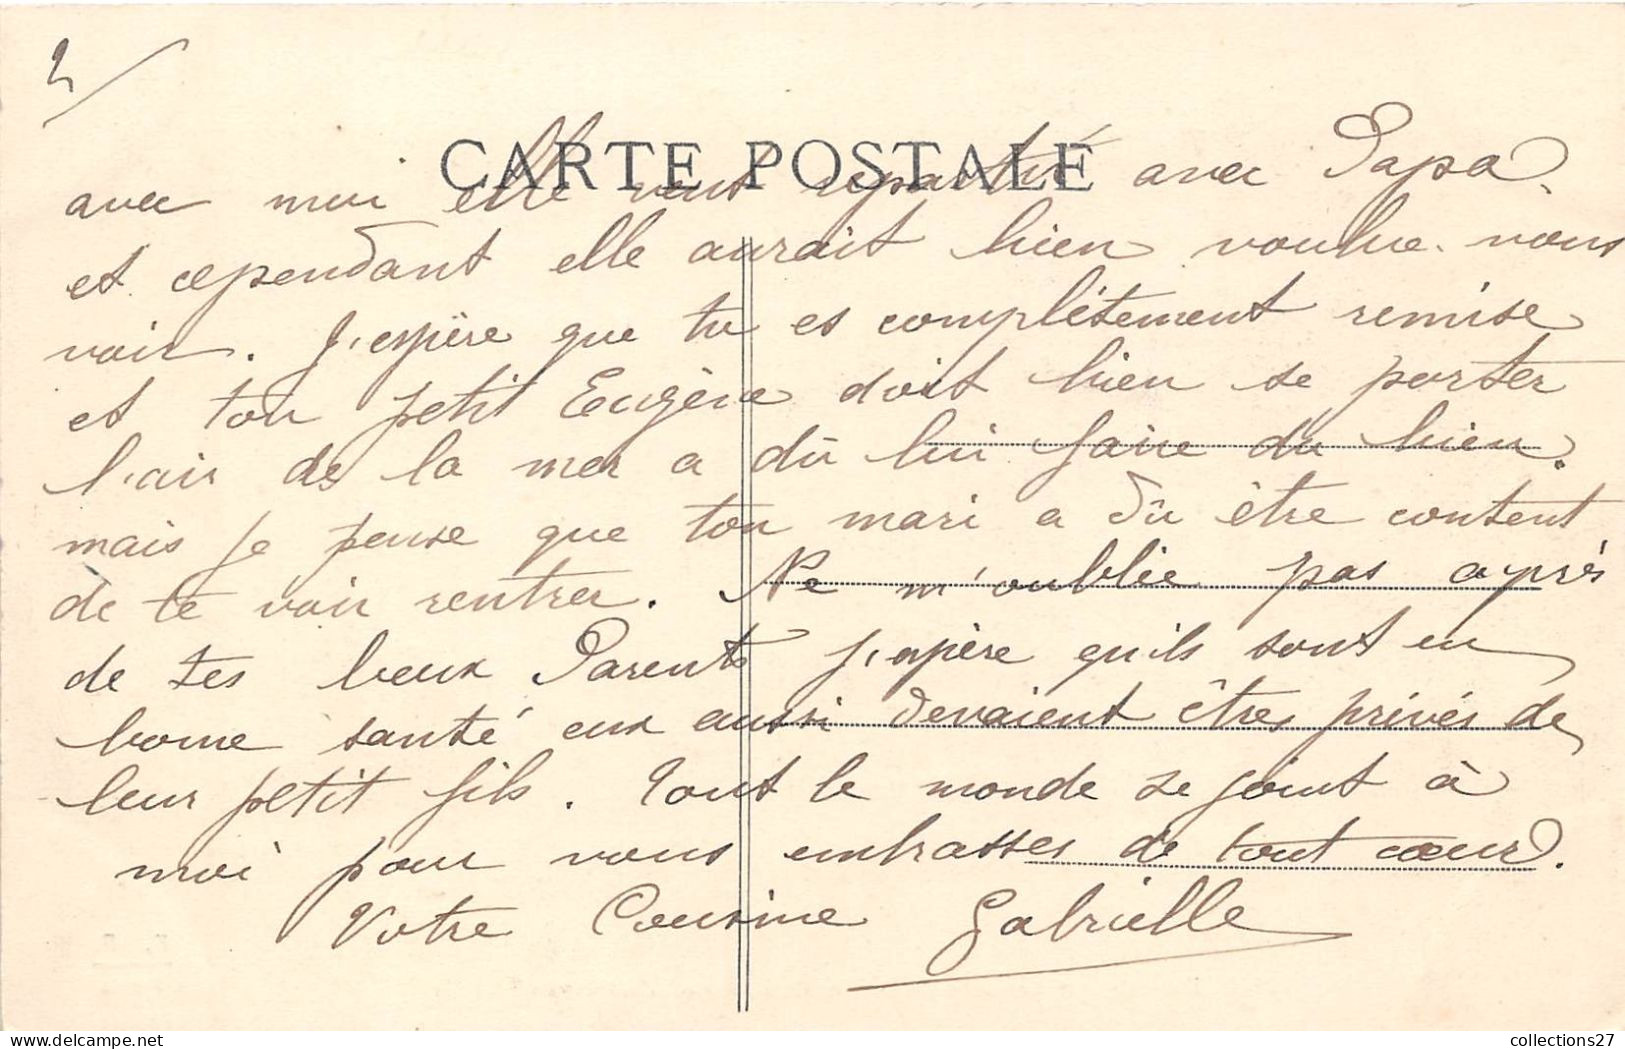 2
CARTE POSTALE
avec moi elle veut repartir avec Papa.
et cependant elle aurait bien voulue vous
voir. J'espère que tu es complètement remise
et ton petit Eugène doit bien se porter
l'air de la mer a dû lui faire du bien.
mais je pense que ton mari a dû être content
de te voir rentrer. Ne m'oublie pas après
de tes beux Parents J'espère qu'ils sont en
bonne santé eux aussi devaient êtres privés de
leur petit fils. Tout le monde se joint à
moi pour vous embrasses de tout cœur.
Votre Cousine Gabrielle
collections27